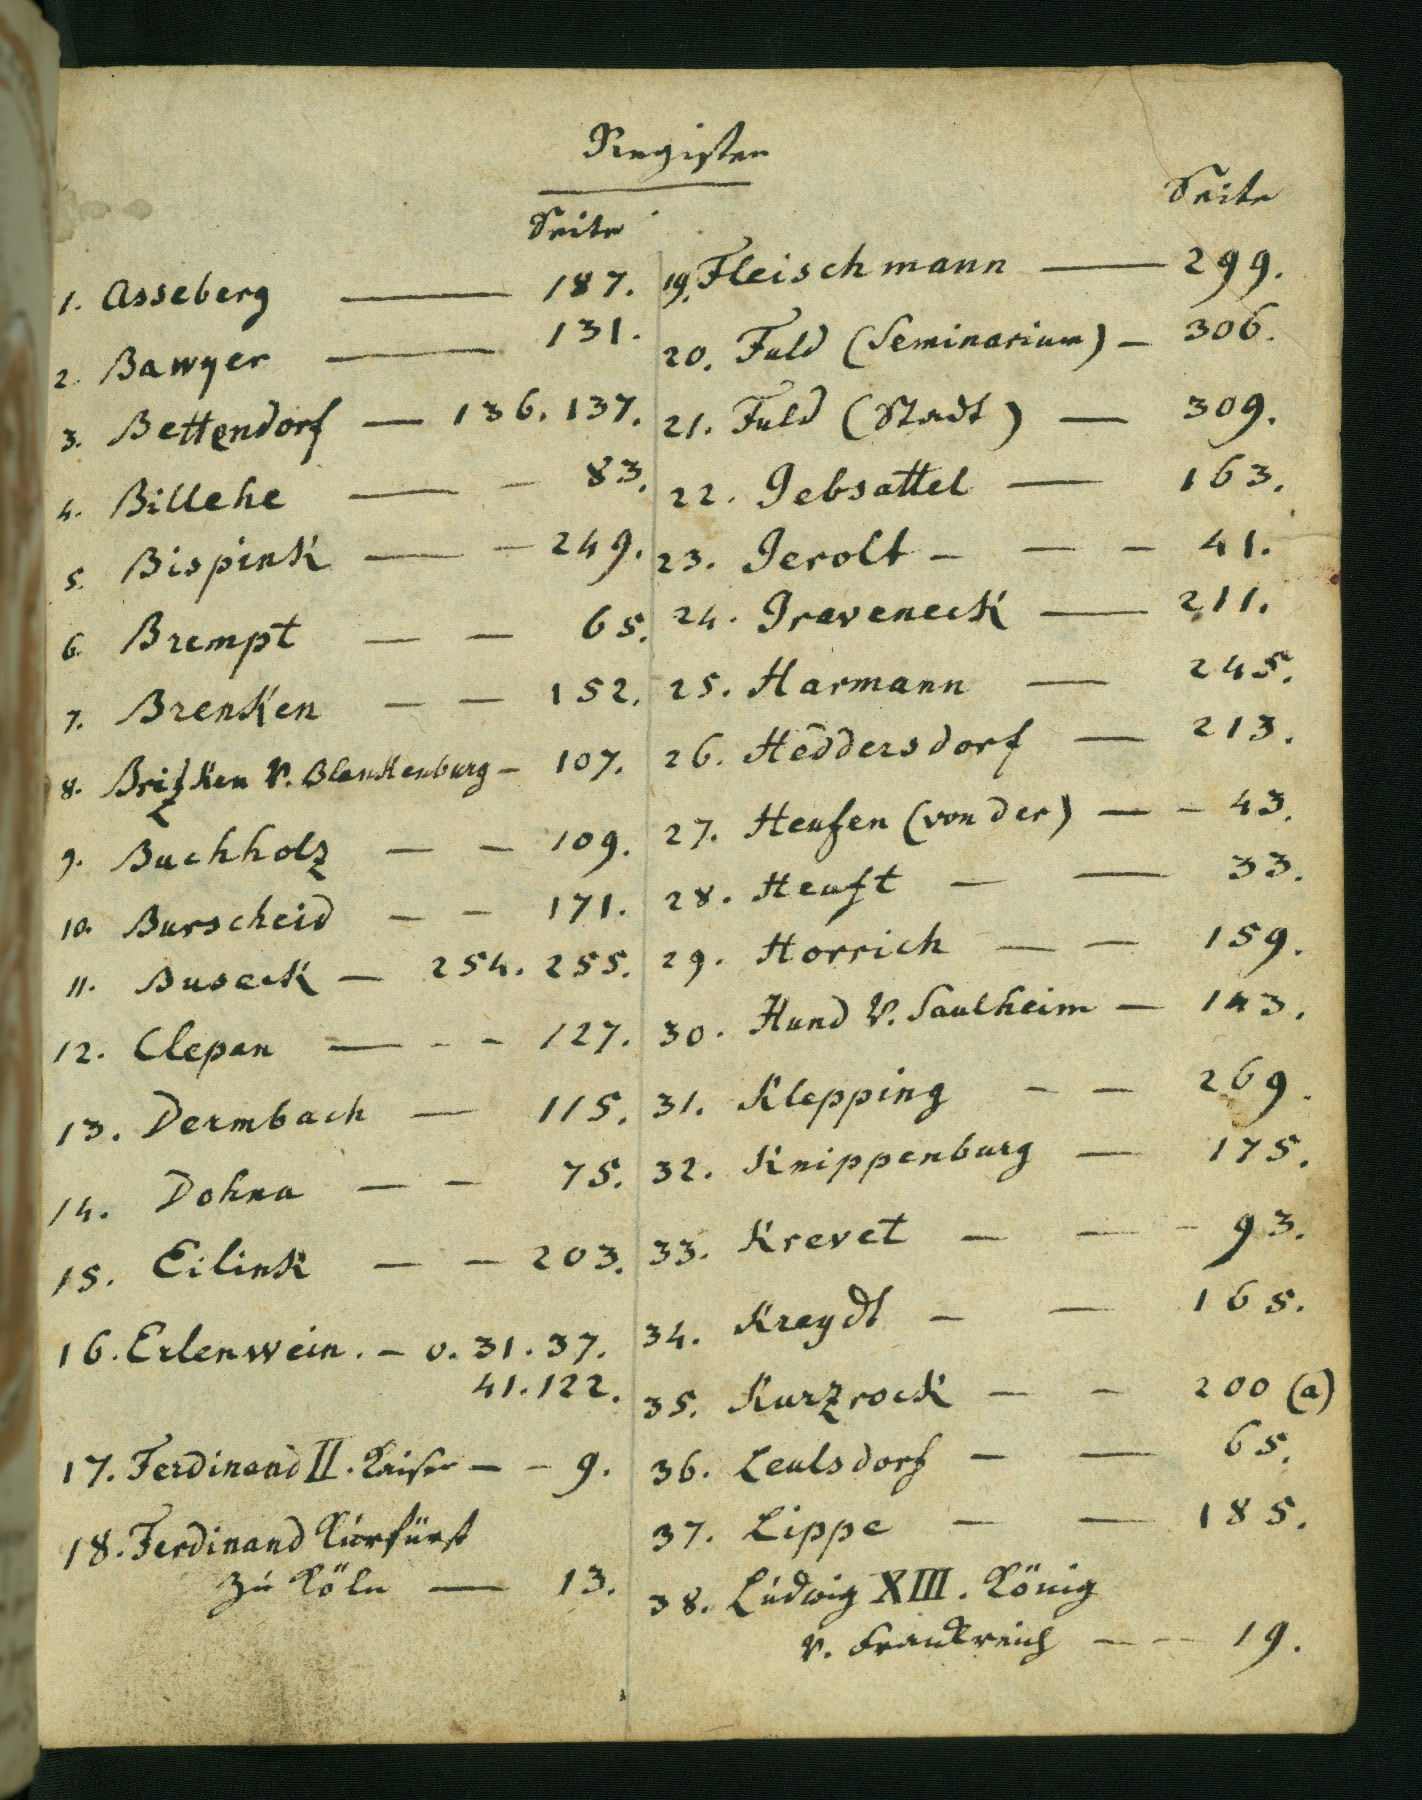 Register
Seite
1. Asseberg — 187.
2. Bawyer — 131.
3. Bettendorf — 136. 137.
4. Billehe — – 83.
5. Bispink — – 249.
6. Brempt — — 65.
7. Brenken — — 152.
8. Britzken v. Blankenburg – 107.
9. Buchholz — — 109.
10. Burscheid — — 171.
11. Buseck — 254. 255.
12. Clepan — - - 127.
13. Dermbach — 115.
14. Dohna — — 75.
15. Eilink — — 203.
16. Erlenwein. – v. 31. 37.
41. 122.
17. Ferdinand II. Kaiser — – 9.
18. Ferdinand Kurfürst
zu Köln — 13.
Seite
19. Fleischmann — 299.
20. Fuld (Seminarium) – 306.
21. Fuld (Stadt) — 309.
22. Gebsattel — 163.
23. Gerolt – — – 41.
24. Graveneck — 211.
25. Harmann — 245.
26. Heddersdorf — 213.
27. Heusen (von der) — – 43.
28. Heust — — 33.
29. Horrich — — 159.
30. Hund v. Saulheim — 143.
31. Klepping – — 269.
32. Knippenburg — 175.
33. Krevet — — – 93.
34. Kreydt — — 165.
35. Kurzrock — – 200 (a)
36. Leulsdorf — — 65.
37. Lippe — — 185.
38. Ludwig XIII. König
v. Frankreich — — 19.